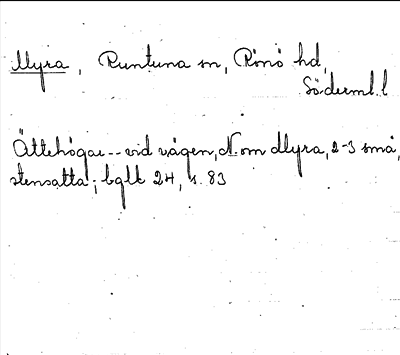 Myra, Runtuna sn, Rönö hd,
Söderml. l
Ättehögar -- vid vägen, N. om Myra, 2-3 små,
stensatta; bglt 24, s. 83